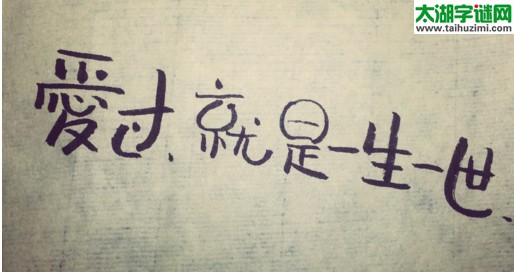 太湖字谜网
www.taihuzimi.com
愛过、就是一生一世、